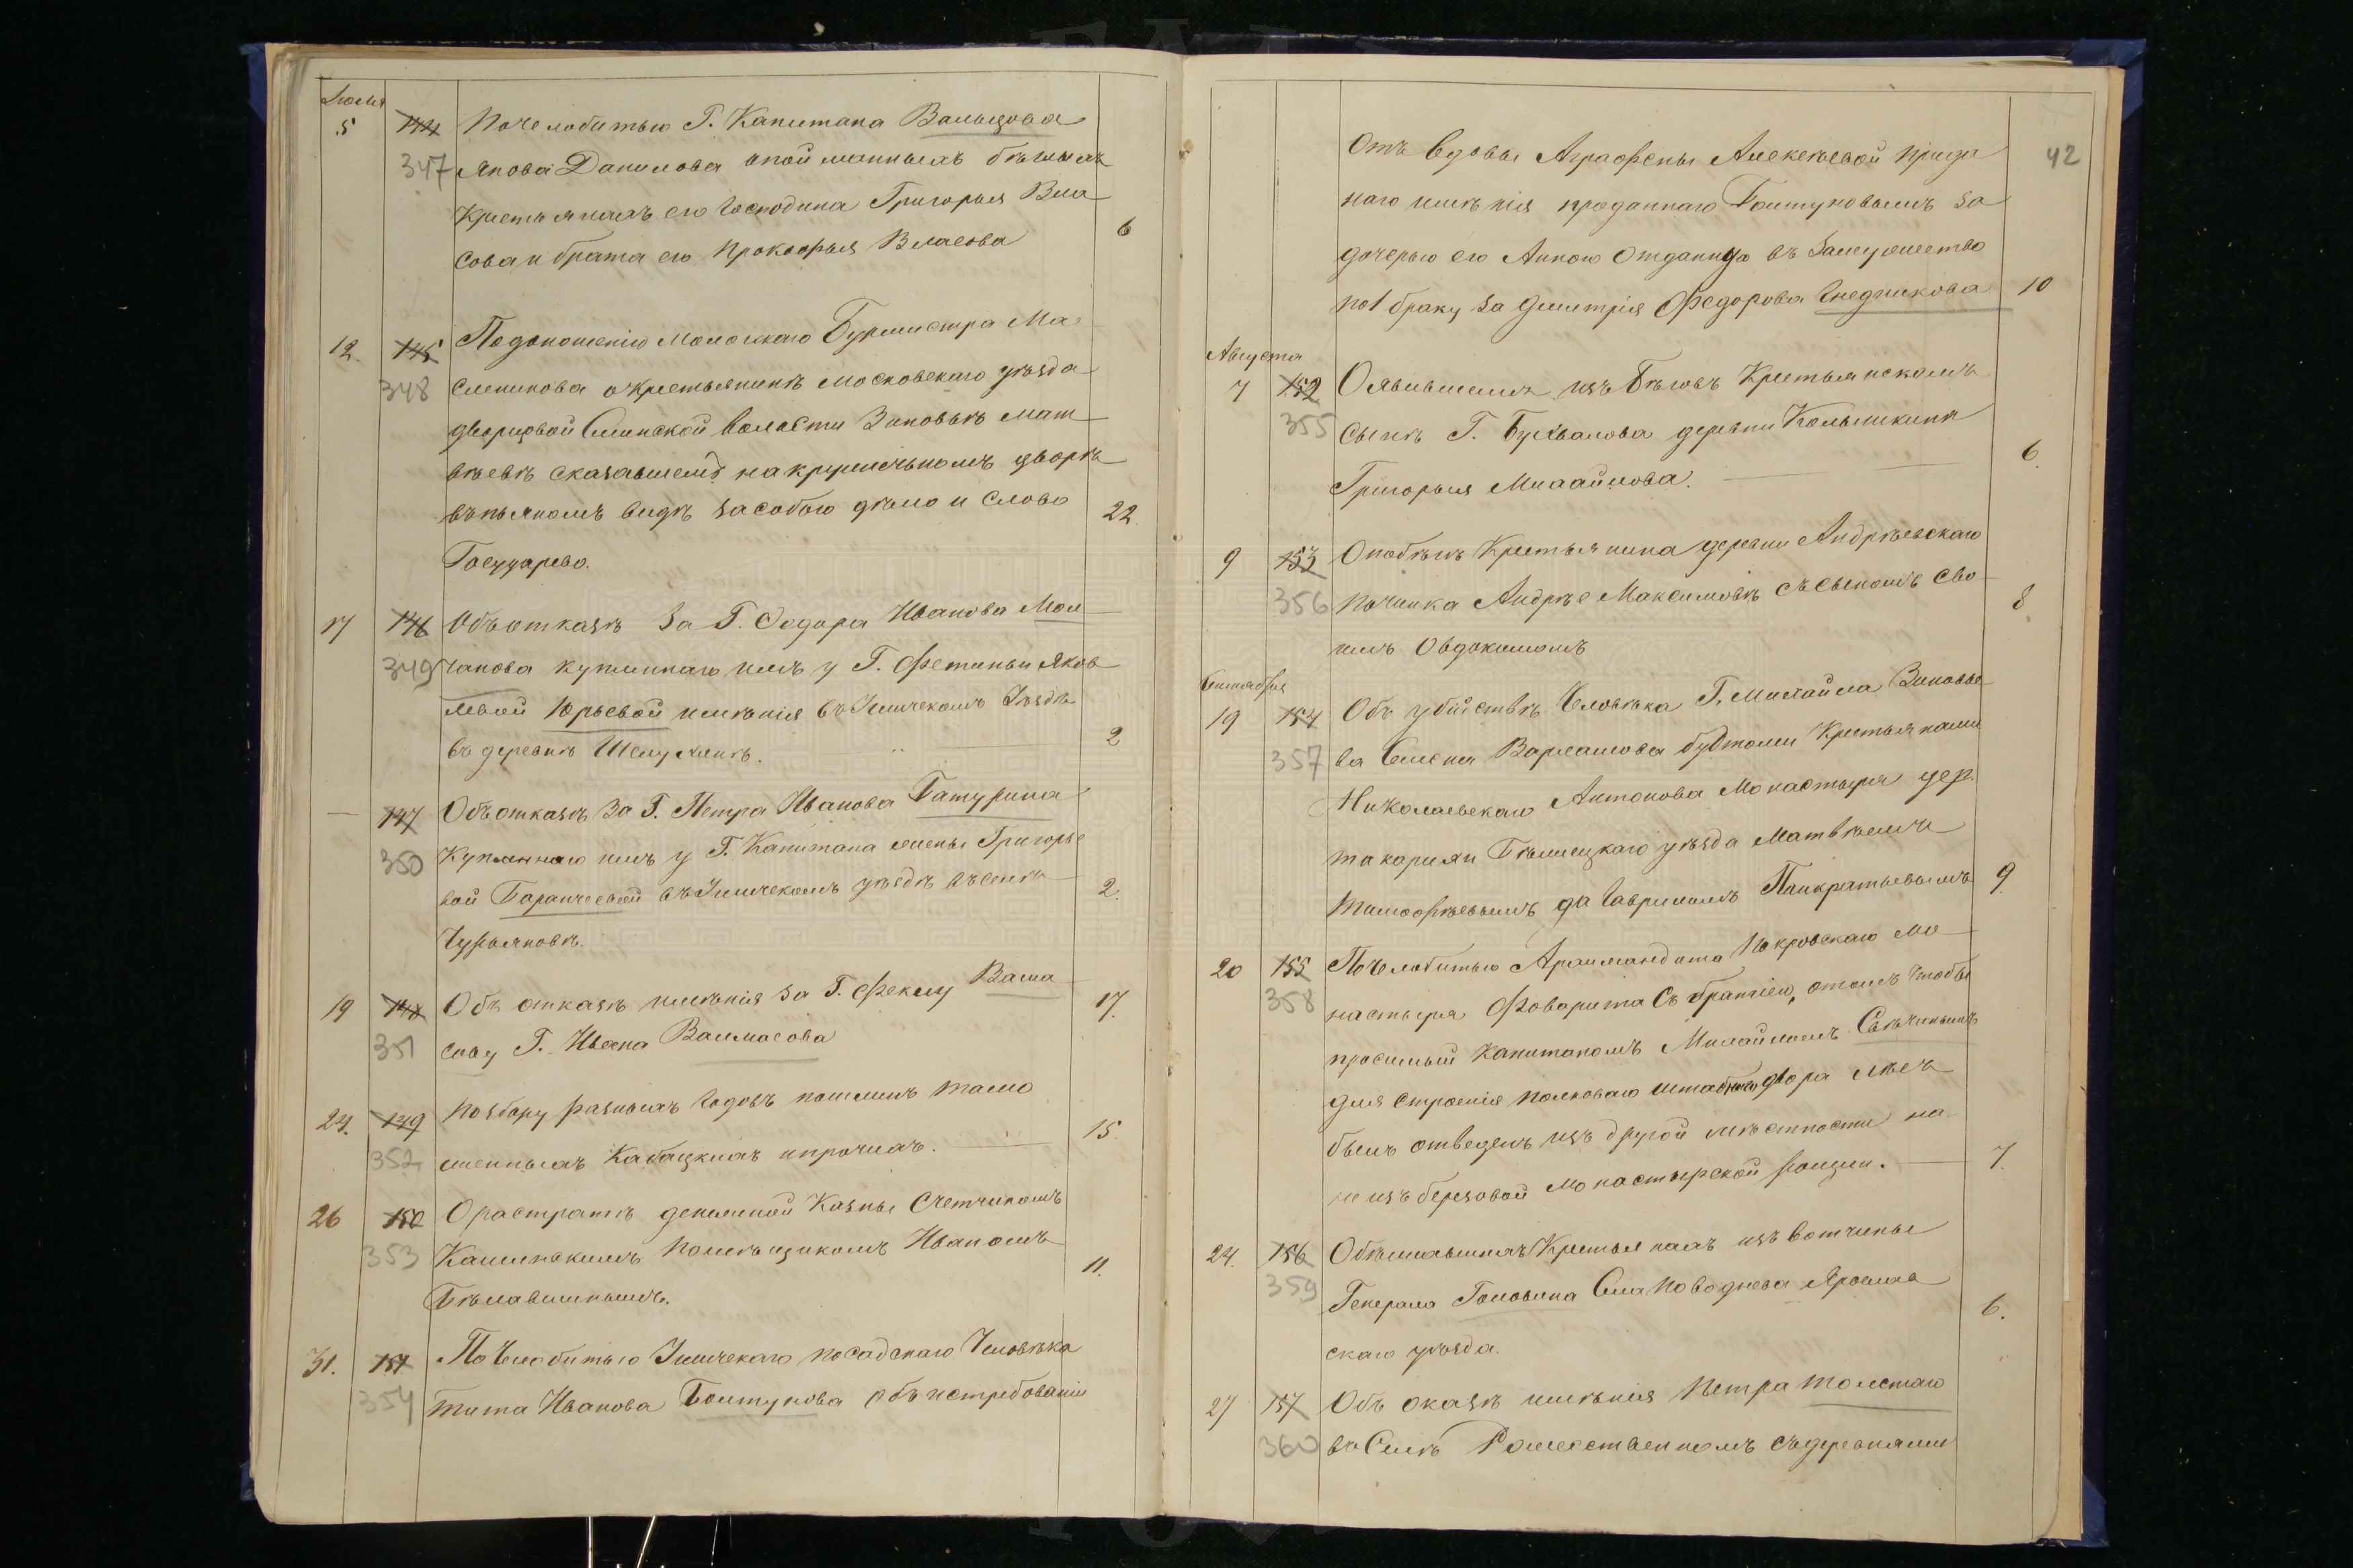 Іюля
5 144 Почелобитью Г. Капитана Вальцова
347 Якова Данилова опойманныхъ бѣглыхъ
Крестьянахъ его Господина Григорья Вла
сова и брата его Прокофья Власова 6
12. 145 Подоношенію Мологскаго Бурмистра Ма
348 сленикова окрестьянинѣ Московскаго уѣзда
дворцовой Селинской волости Зиновьѣ Мат
вѣевѣ сказавшемъ накружечьномъ дворѣ
въпьяномъ видѣ засобою дѣло и слово 22.
Государево.
17 146 Объотказѣ За Г. Ѳедора Иванова Мол
349 чанова купленнаго имъ у Г. Фетиньи Яков
левой Юрьевой имѣнія въ Углическомъ Уѣздѣ
въ деревнѣ Шелухинѣ. 2
— 147 Объотказѣ За Г. Петра Иванова Батурина
350 Купленнаго имъ у Г. Капитана жены Григорье
вой Баранчеевой въ Углическомъ уѣздѣ въсельцѣ 2.
Чурьяновѣ.
19 148 Объ отказѣ имѣнія за Г. Феклу Валма 17.
351 сову Г. Ивана Валмасова
24. 149 Позбору разныхъ Годовъ пошлинъ тамо
352 женныхъ Кабацкихъ ипрочихъ. 15.
26 150 Орастратѣ денежной Казны Счетчикомъ
353 Кашинскимъ помѣщикомъ Иваномъ 11.
Бѣлавшинымъ.
31. 151 По Челобитью Углическаго посадскаго Человѣка
354 Тита Иванова Болтунова объ истребованіи
42
Отъ вдовы Аграфены Алексѣевой прида
наго имѣнія проданнаго Болтуновымъ за
дочерью его Анною отданную въ замужество
по 1 браку за Дмитрія Федорова Гнедчикова 10
Августа
7 152 Оявившемся изъ Бѣговъ Крестьянскомъ
355 сынѣ Г. Бухвалова деревни Колышкина
Григорья Михайлова. 6.
9 153 Опобѣгѣ Крестьянина деревни Андрѣевскаго
356 починка Андрѣе Максимовѣ съ сыномъ сво 8.
имъ Овдокимомъ
Сентября
19 154 Объ убійствѣ Человѣка Г. Михайла Зиновье
357 ва Семена Варламова будтоли Крестьянами
Николаевскаго Антонова Монастыря дер.
Токаріхи Бѣжецкаго уѣзда Матвѣемъ
Тимофѣевымъ да Гавриломъ Панкратьевымъ 9.
20 155 По Челобитью Архимандрита Покровскаго Мо
358 настыря Фоварита съ братіею, отомъ чтобы
просимый Капитаномъ Михайломъ Свѣчинымъ
для строенія полковаго штабного двора лѣсъ
былъ отведенъ изъ другой мѣстности на
не изъ березовой Монастырской рощи. 7.
24. 156 Обѣжавшихъ Крестьянахъ изъ вотчины
359 Генерала Головина Села Новоднева Ярослав
скаго уѣзда. 6.
27 157 Объ оказѣ имѣнія Петра Толстаго
360 въ Селѣ Рожественномъ съдеревнями